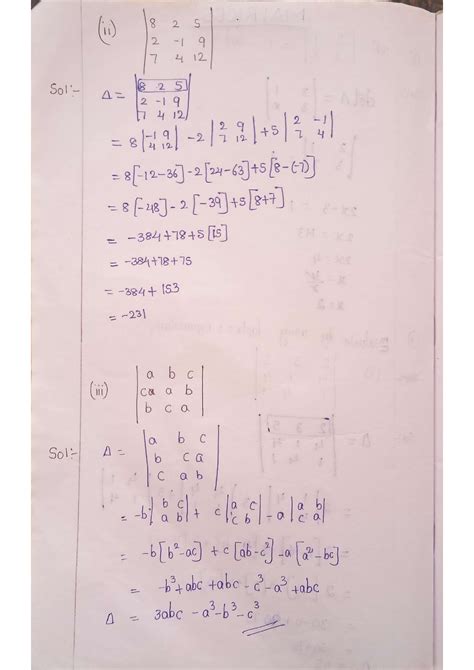 (ii) | 8 2 5 |
| 2 -1 9 |
| 7 4 12 |
Sol:- Δ = | 8 2 5 |
| 2 -1 9 |
| 7 4 12 |
= 8 | -1 9 | -2 | 2 9 | +5 | 2 -1 |
| 4 12 | | 7 12 | | 7 4 |
= 8[-12-36] -2[24-63] +5[8-(-7)]
= 8[-48] - 2[-39] +5[8+7]
= -384+78+5[15]
= -384+78+75
= -384+ 153
= -231
(iii) | a b c |
| ca a b |
| b c a |
Sol:- Δ = | a b c |
| b c a |
| c a b |
= -b | b c | + c | a c | - a | a b |
| a b | | c b | | c a |
= -b[b²-ac] + c[ab-c²] -a[a²-bc]
= -b³+abc +abc -c³-a³ +abc
Δ = 3abc -a³-b³-c³